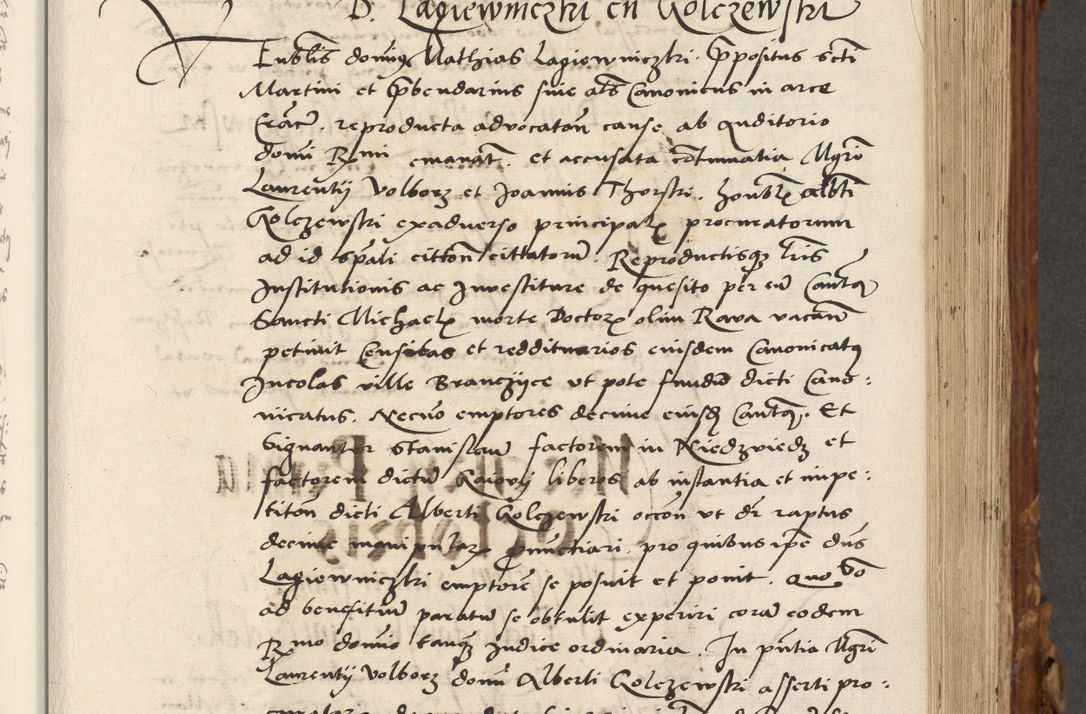 D. Lagiewniczki cũ Golczewski
Eñblis dominꝯ Mathias Lagiewniczki. Ppositus scti
Martini et Pbendarius siue als Canonicus in arce
Crac̃. reproducta aduocatoñ cause ab Auditorio
domi Rmi emanat̃. et accusata cõtumatia Mgri
Laurentij Volborz et Joannis Thorski. honbl̃ Alberti
Golczewski exaduerso principal procuratorum
ad id spali cittoñ cittatorũ. Reproductisqꝫ lris
Institutionis ac Inuestiture de quesito per eũ Cantꝯ
Sancti Michael morte Doctor olim Raua vacañ
petiuit Censibas et reddituarios eiusdem Canonicatꝯ
Incolas ville Branczijce vt pote fundũ dicti Cano:
nicatus. Necnõ emptores decime eiusdꝫ Cantꝯ. Et
signanter Stanislaũ factorem in Niedzviedz et
factorem dictũ Gaiovij liberos ab instantia et impe:
titoñ dicti Alberti Golczewski occoñ vt dr raptus
decime manipular pronũctiari. pro quibus ipe dñs
Lagiewniczki emptore se posuit et ponit. Quo vo
ad benefitiũ paratũ se obtulit experiri corã eodem
Rmo domino tanqꝫ Iudice ordinaria. In pñtia Mgri
Laurentij Volborz domi Alberti Golczewski asserti pro: